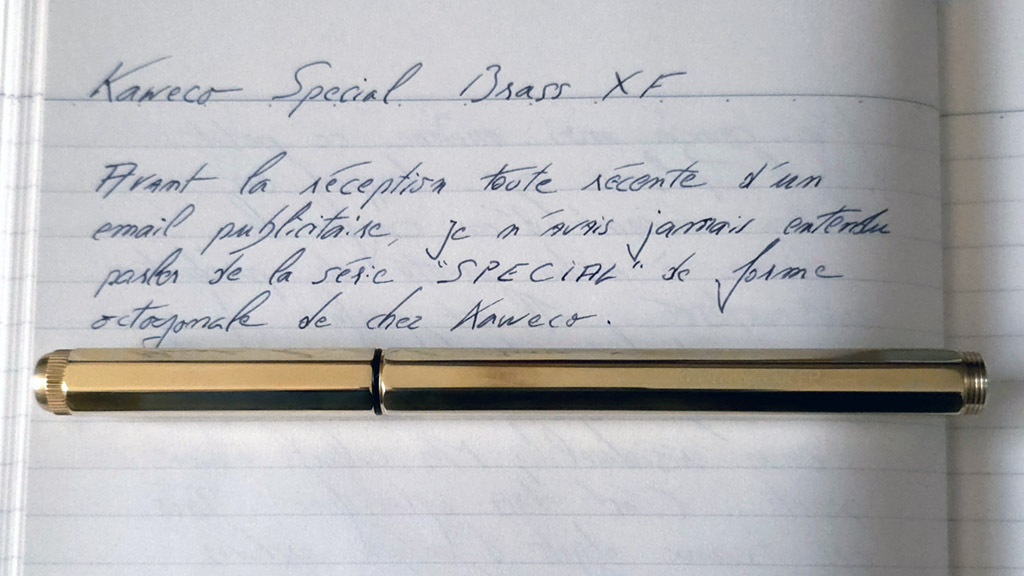 Kaweco Special Brass XF
Avant la réception toute récente d'un
email publicitaire, je n'avais jamais entendu
parler de la série "SPECIAL" de forme
octogonale de chez Kaweco.